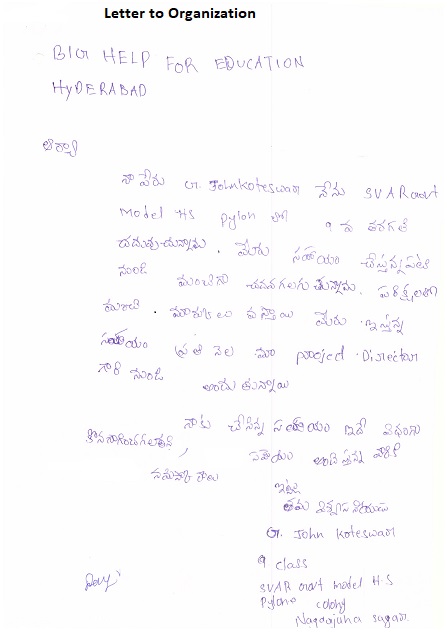 Letter to Organization
BIG HELP FOR EDUCATION
HYDERABAD
ఆర్యా
నా పేరు G. Johnkoteswar నేను SVARGovt
Model HS Pylon లో 9 వ తరగతి
చదువుచున్నాను. మీరు సహాయం చేస్తున్నప్పటి
నుండి మంచిగా చదవగలుగుతున్నాను. పరీక్షలలో
మంచి మార్కులు వస్తాయి మీరు ఇస్తున్న
సహాయం ప్రతి నెల మా project Director
గారి నుండి అందుతున్నాయి
నాకు చేసిన సహాయం ఇదే విధంగా
కొనసాగించగలరని, సహాయం అందిస్తున్న వారికి
నమస్కారాలు
ఇట్లు
తమ విశ్వసనీయుడు
G. John Koteswar
9 class
SVAR Govt model H.S
Pylon colony
Nagarjuna sagar.